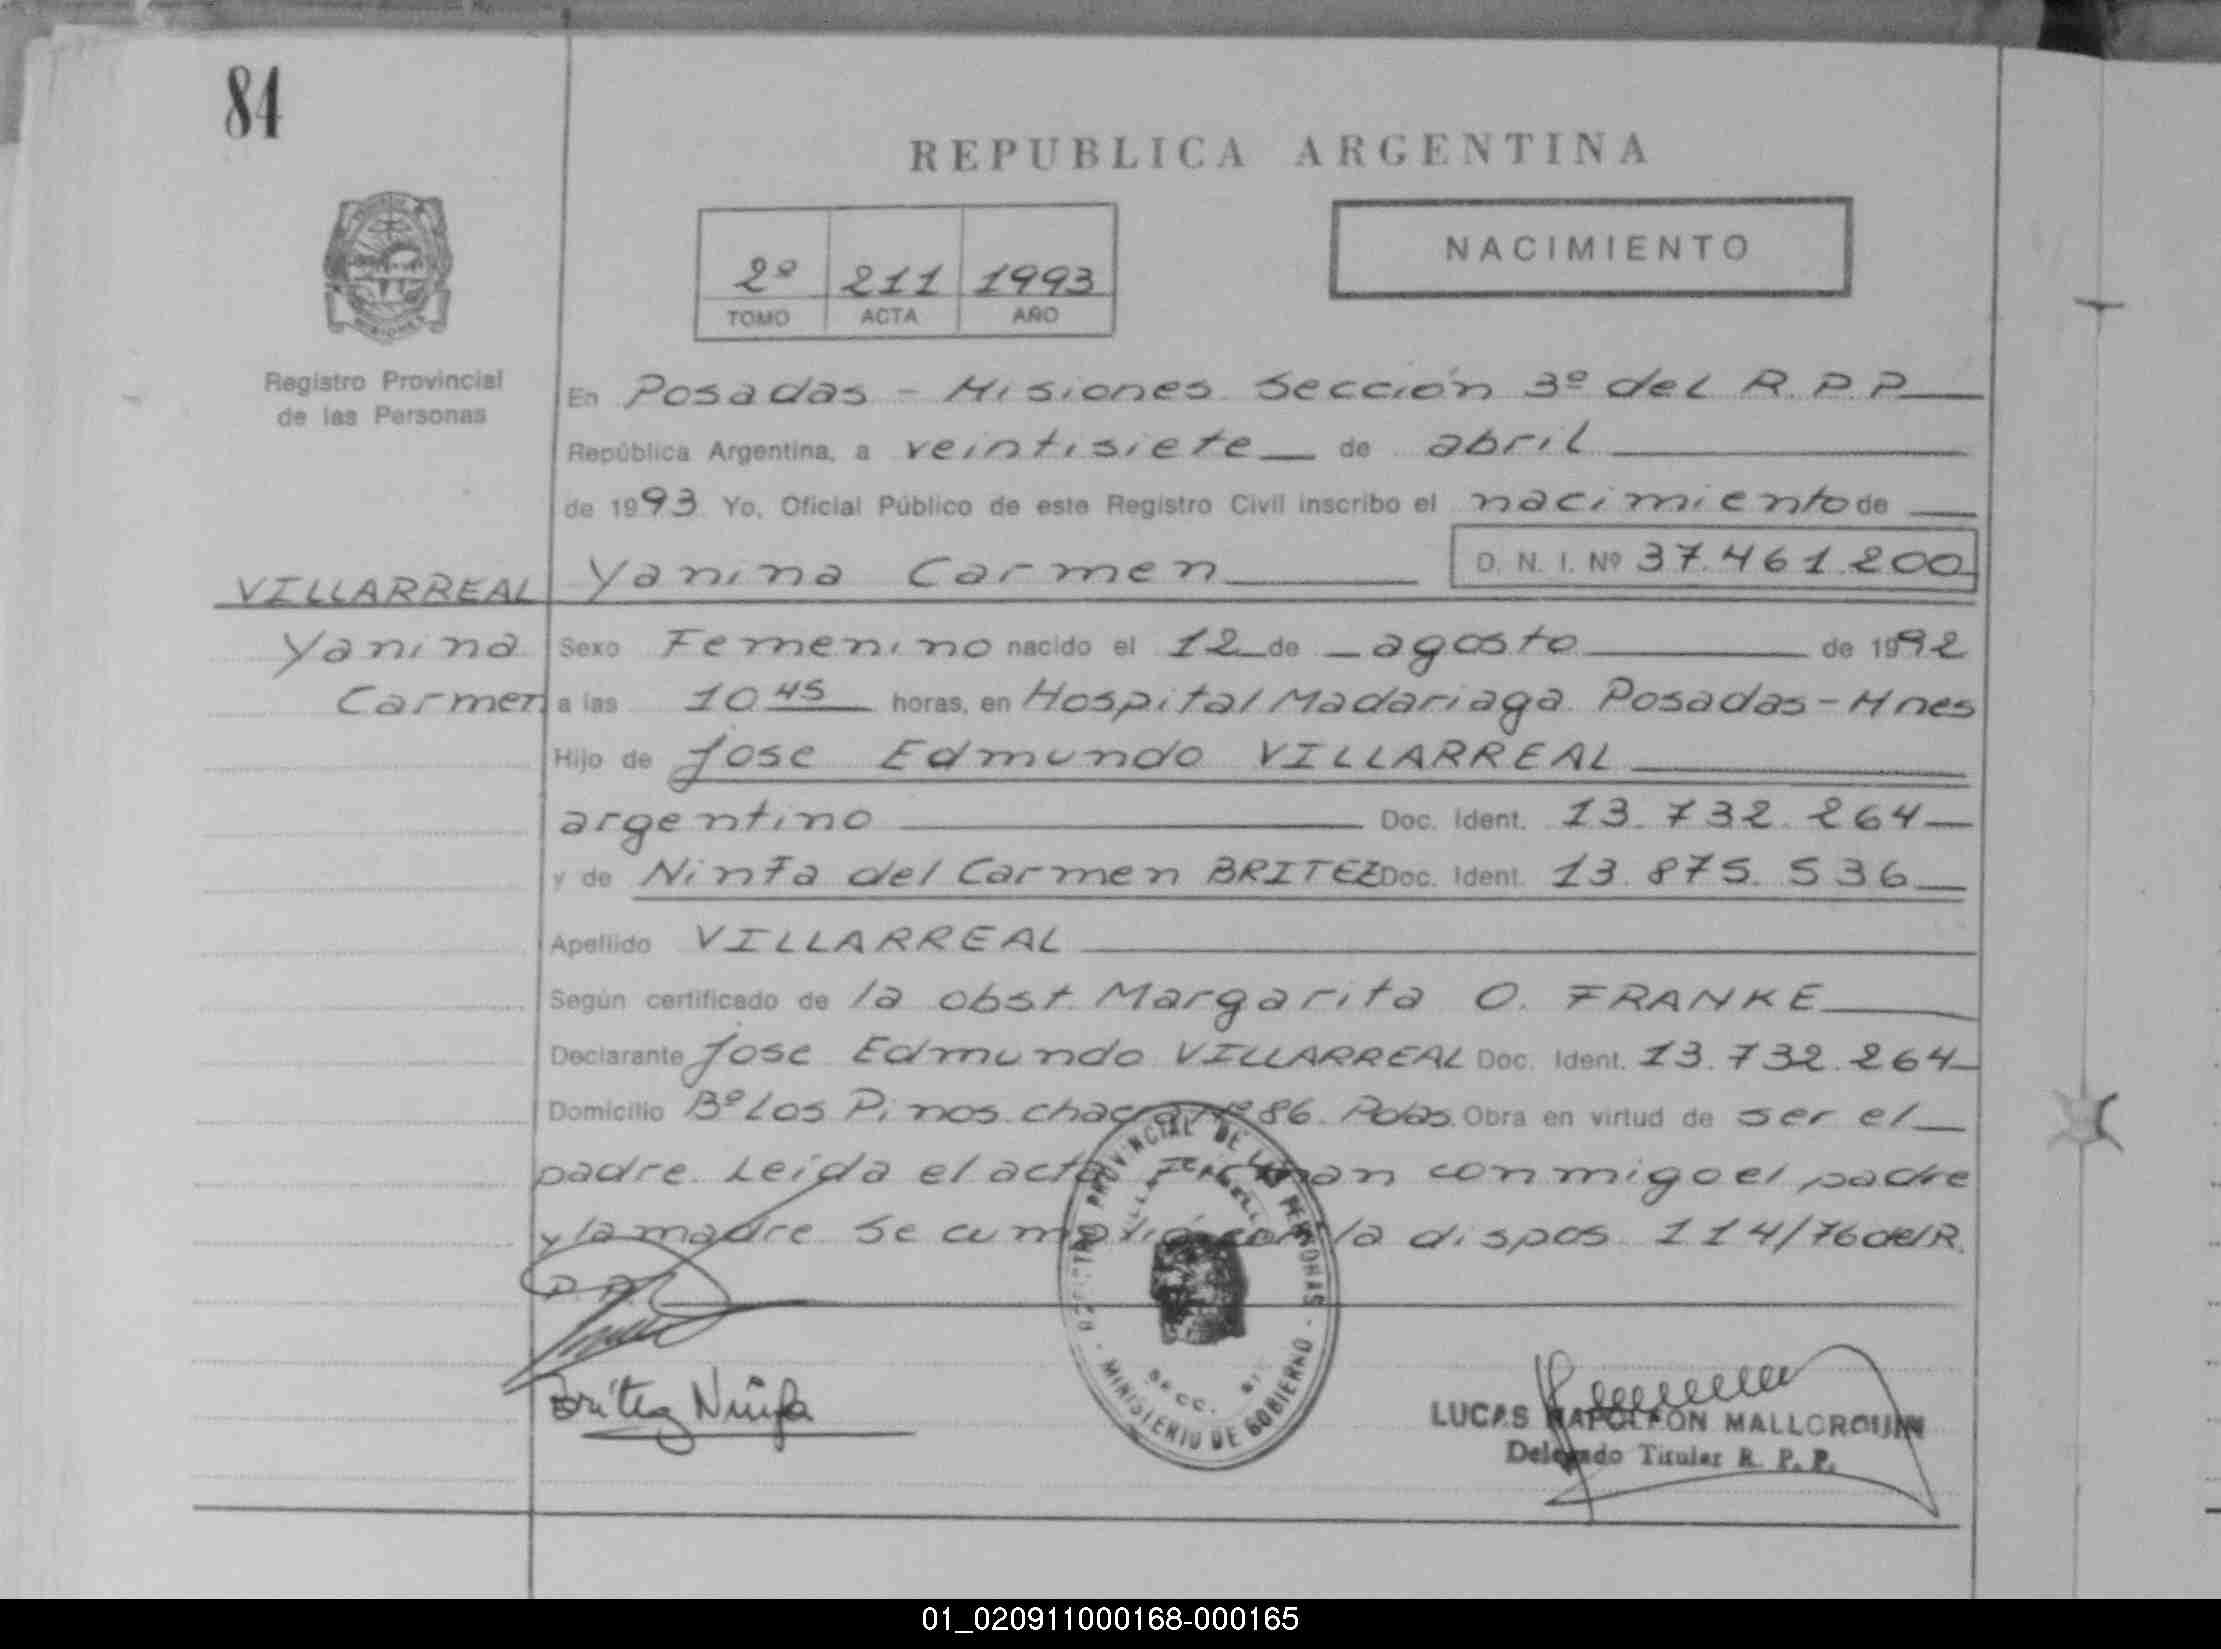 84
REPUBLICA ARGENTINA
2º 211 1993
TOMO ACTA AÑO
NACIMIENTO
MISIONES
Registro Provincial
de las Personas
En Posadas - Misiones Sección 3º del R.P.P
República Argentina, a veintisiete de abril
de 1993 Yo, Oficial Público de este Registro Civil inscribo el nacimiento de
Yanina Carmen D. N. I. Nº 37.461.200
VILLARREAL
Yanina
Carmen
Sexo Femenino nacido el 12 de agosto de 1992
a las 10 45 horas, en Hospital Madariaga Posadas-Mnes
Hijo de Jose Edmundo VILLARREAL
argentino Doc. Ident. 13.732.264
y de Ninfa del Carmen BRITEZ Doc. Ident. 13.875.536
Apellido VILLARREAL
Según certificado de la obst. Margarita O. FRANKE
Declarante Jose Edmundo VILLARREAL Doc. Ident. 13.732.264
Domicilio Bº Los Pinos chacra Nº 86. Pdas. Obra en virtud de ser el
padre. Leida el acta Firman conmigo el padre
y la madre Se cumplió con la dispos. 114/76 del R.
P.P.
REGISTRO PROVINCIAL DE LAS PERSONAS
MINISTERIO DE GOBIERNO
SECC.
Britez Ninfa
LUCAS NAPOLEON MALLORQUIN
Delegado Titular R. P. P.
01_020911000168-000165